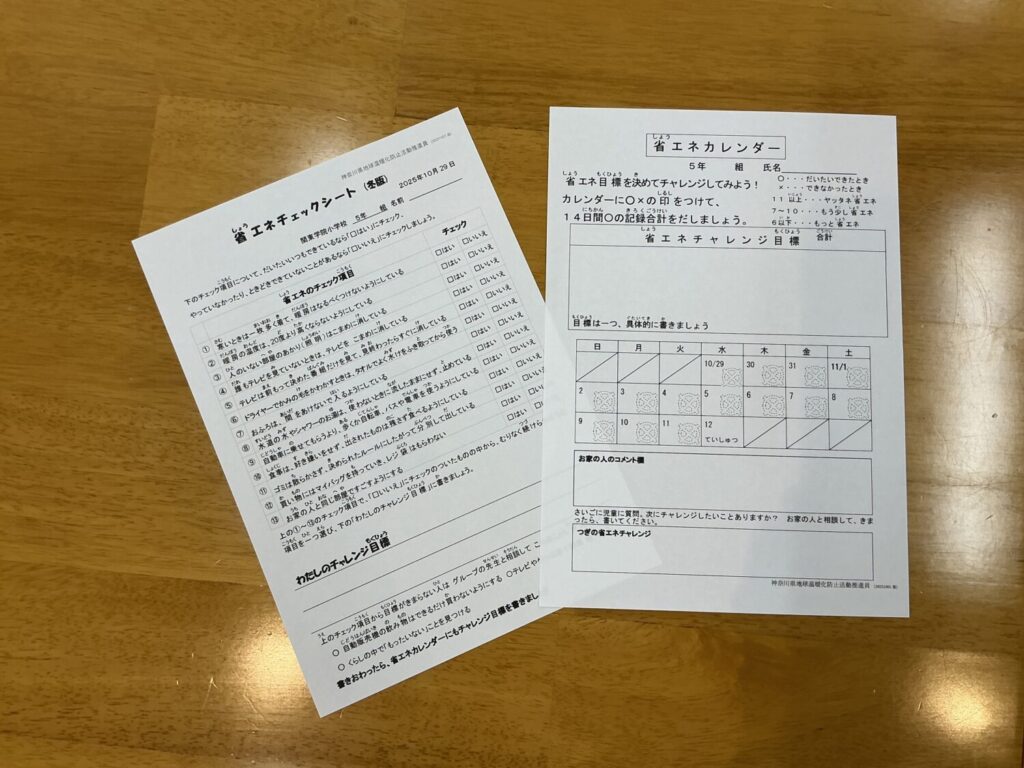 神奈川県地球温暖化防止活動推進員
省エネチェックシート（冬版） 2025年10月29日
関東学院小学校 5年 組 名前
下のチェック項目について、だいたいいつもできているなら「□はい」にチェック、
やっていなかったり、ときどきできていないことがあるなら「□いいえ」にチェックしましょう。
省エネのチェック項目 チェック
① 寒いときは一枚多く着て、暖房はなるべくつけないようにしている □はい □いいえ
② 暖房の温度は、20度より高くならないようにしている □はい □いいえ
③ 人のいない部屋のあかり（照明）はこまめに消している □はい □いいえ
④ 誰もテレビを見ていないときは、テレビを こまめに消している □はい □いいえ
⑤ テレビは前もって決めた番組だけを見て、見終わったらすぐに消している □はい □いいえ
⑥ ドライヤーでかみの毛をかわかすときは、タオルでよく水けをふき取ってから使う □はい □いいえ
⑦ おふろは、間をあけないで入るようにしている □はい □いいえ
⑧ 水道の水やシャワーのお湯は、使わないときに流したままにせず、止めている □はい □いいえ
⑨ 自動車に乗せてもらうより、歩くか自転車、バスや電車を使うようにしている □はい □いいえ
⑩ 食事は、好き嫌いをせず、出されたものは残さず食べるようにしている □はい □いいえ
⑪ ゴミは散らかさず、決められたルールにしたがって分別して出している □はい □いいえ
⑫ 買い物にはマイバッグを持っていき、レジ袋はもらわない □はい □いいえ
⑬ お家の人と同じ部屋ですごすようにする □はい □いいえ
上の①～⑬のチェック項目で、「□いいえ」にチェックのついたものの中から、むりなく続けら
項目を一つ選び、下の「わたしのチャレンジ目標」に書きましょう。
わたしのチャレンジ目標
上のチェック項目から目標がきまらない人は グループの先生と相談して こ
○ 自動販売機の飲み物はできるだけ買わないようにする ○テレビや
○ くらしの中で「もったいない」ことを見つける
書きおわったら、省エネカレンダーにもチャレンジ目標を書きまし
省エネカレンダー
5年 組 氏名
省エネ目標を決めてチャレンジしてみよう！
カレンダーに○×の印をつけて、
14日間○の記録合計をだしましょう。
○・・・だいたいできたとき
×・・・できなかったとき
11以上・・・ヤッタネ省エネ
7～10・・・もう少し省エネ
6以下・・・もっと省エネ
省エネチャレンジ目標 合計
目標は一つ、具体的に書きましょう
日 月 火 水 木 金 土
10/29 30 31 11/1
2 3 4 5 6 7 8
9 10 11 12
ていしゅつ
お家の人のコメント欄
さいごに児童に質問。次にチャレンジしたいことありますか？ お家の人と相談して、きま
ったら、書いてください。
つぎの省エネチャレンジ
神奈川県地球温暖化防止活動推進員